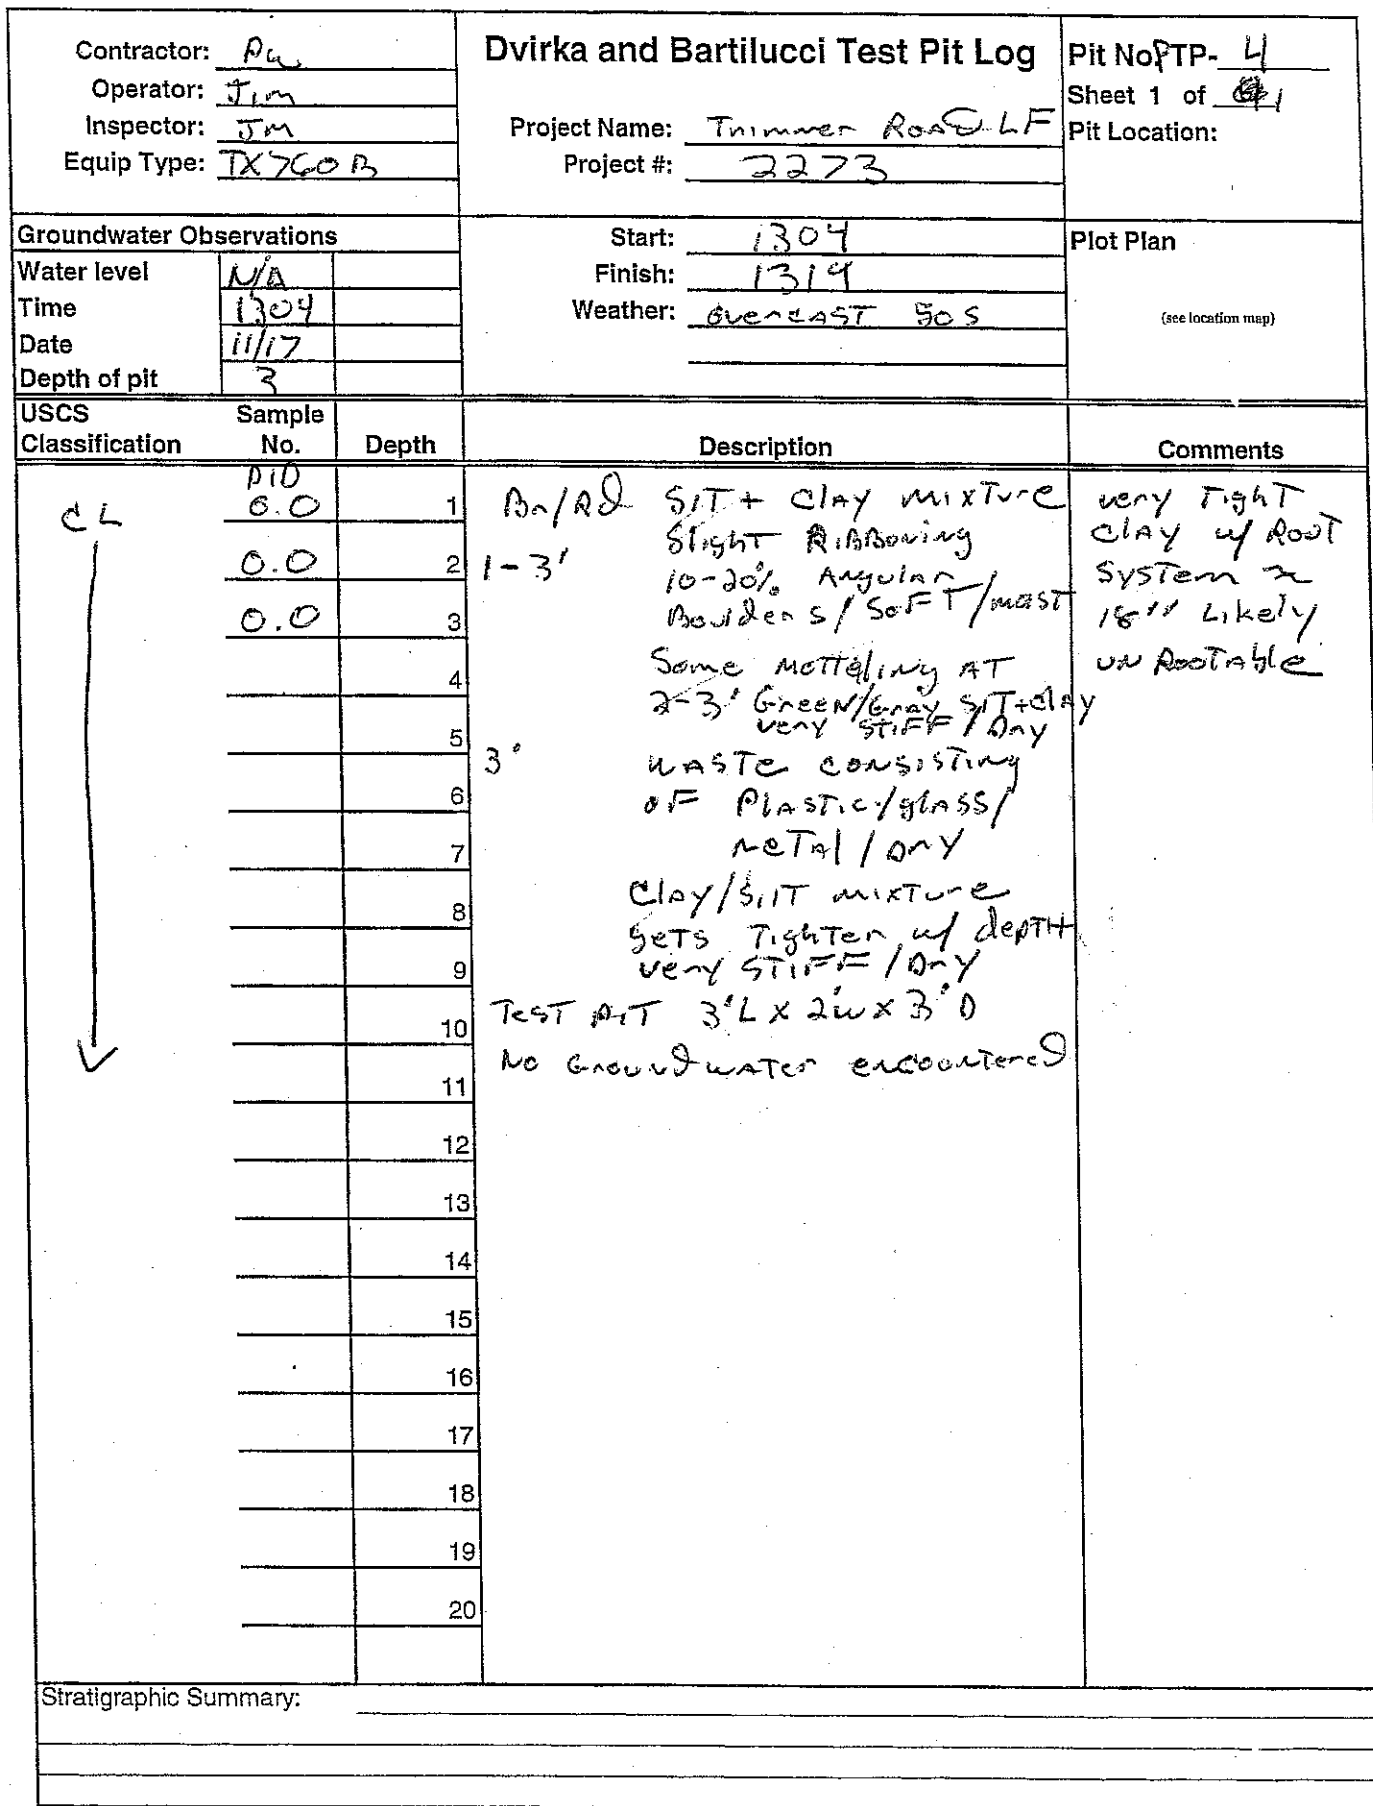 Contractor:
Operator: Jim
Inspector: JM
Equip Type: TX760B
Dvirka and Bartilucci Test Pit Log
Project Name: Trimmer Road LF
Project #: 2273
Pit No PTP- 4
Sheet 1 of 1
Pit Location:
Groundwater Observations
Water level N/A
Time 1304
Date 11/17
Depth of pit 3
Start: 1304
Finish: 1319
Weather: overcast 50s
Plot Plan
(see location map)
USCS Classification
Sample No.
Depth
Description
Comments
PID
CL
0.0 1
0.0 2
0.0 3
4
5
6
7
8
9
10
11
12
13
14
15
16
17
18
19
20
Br/Rd SiT + Clay mixTure
Slight Ribboning
1-3' 10-20% Angular
Boulders/SoFT/moist
Some Motteling AT
2-3' Green/Gray SiT+Clay
very STiFF/Dry
3' WASTe consisting
oF PlAsTic/glAss/
meTAl/Dry
Clay/SilT mixTure
geTs TighTer w/ depTH
very STiFF/Dry
TesT PiT 3'L x 2'w x 3'D
No GroundwaTer encountered
very TighT
Clay w/ RooT
SysTem ~
18" Likely
unRooTAble
Stratigraphic Summary: